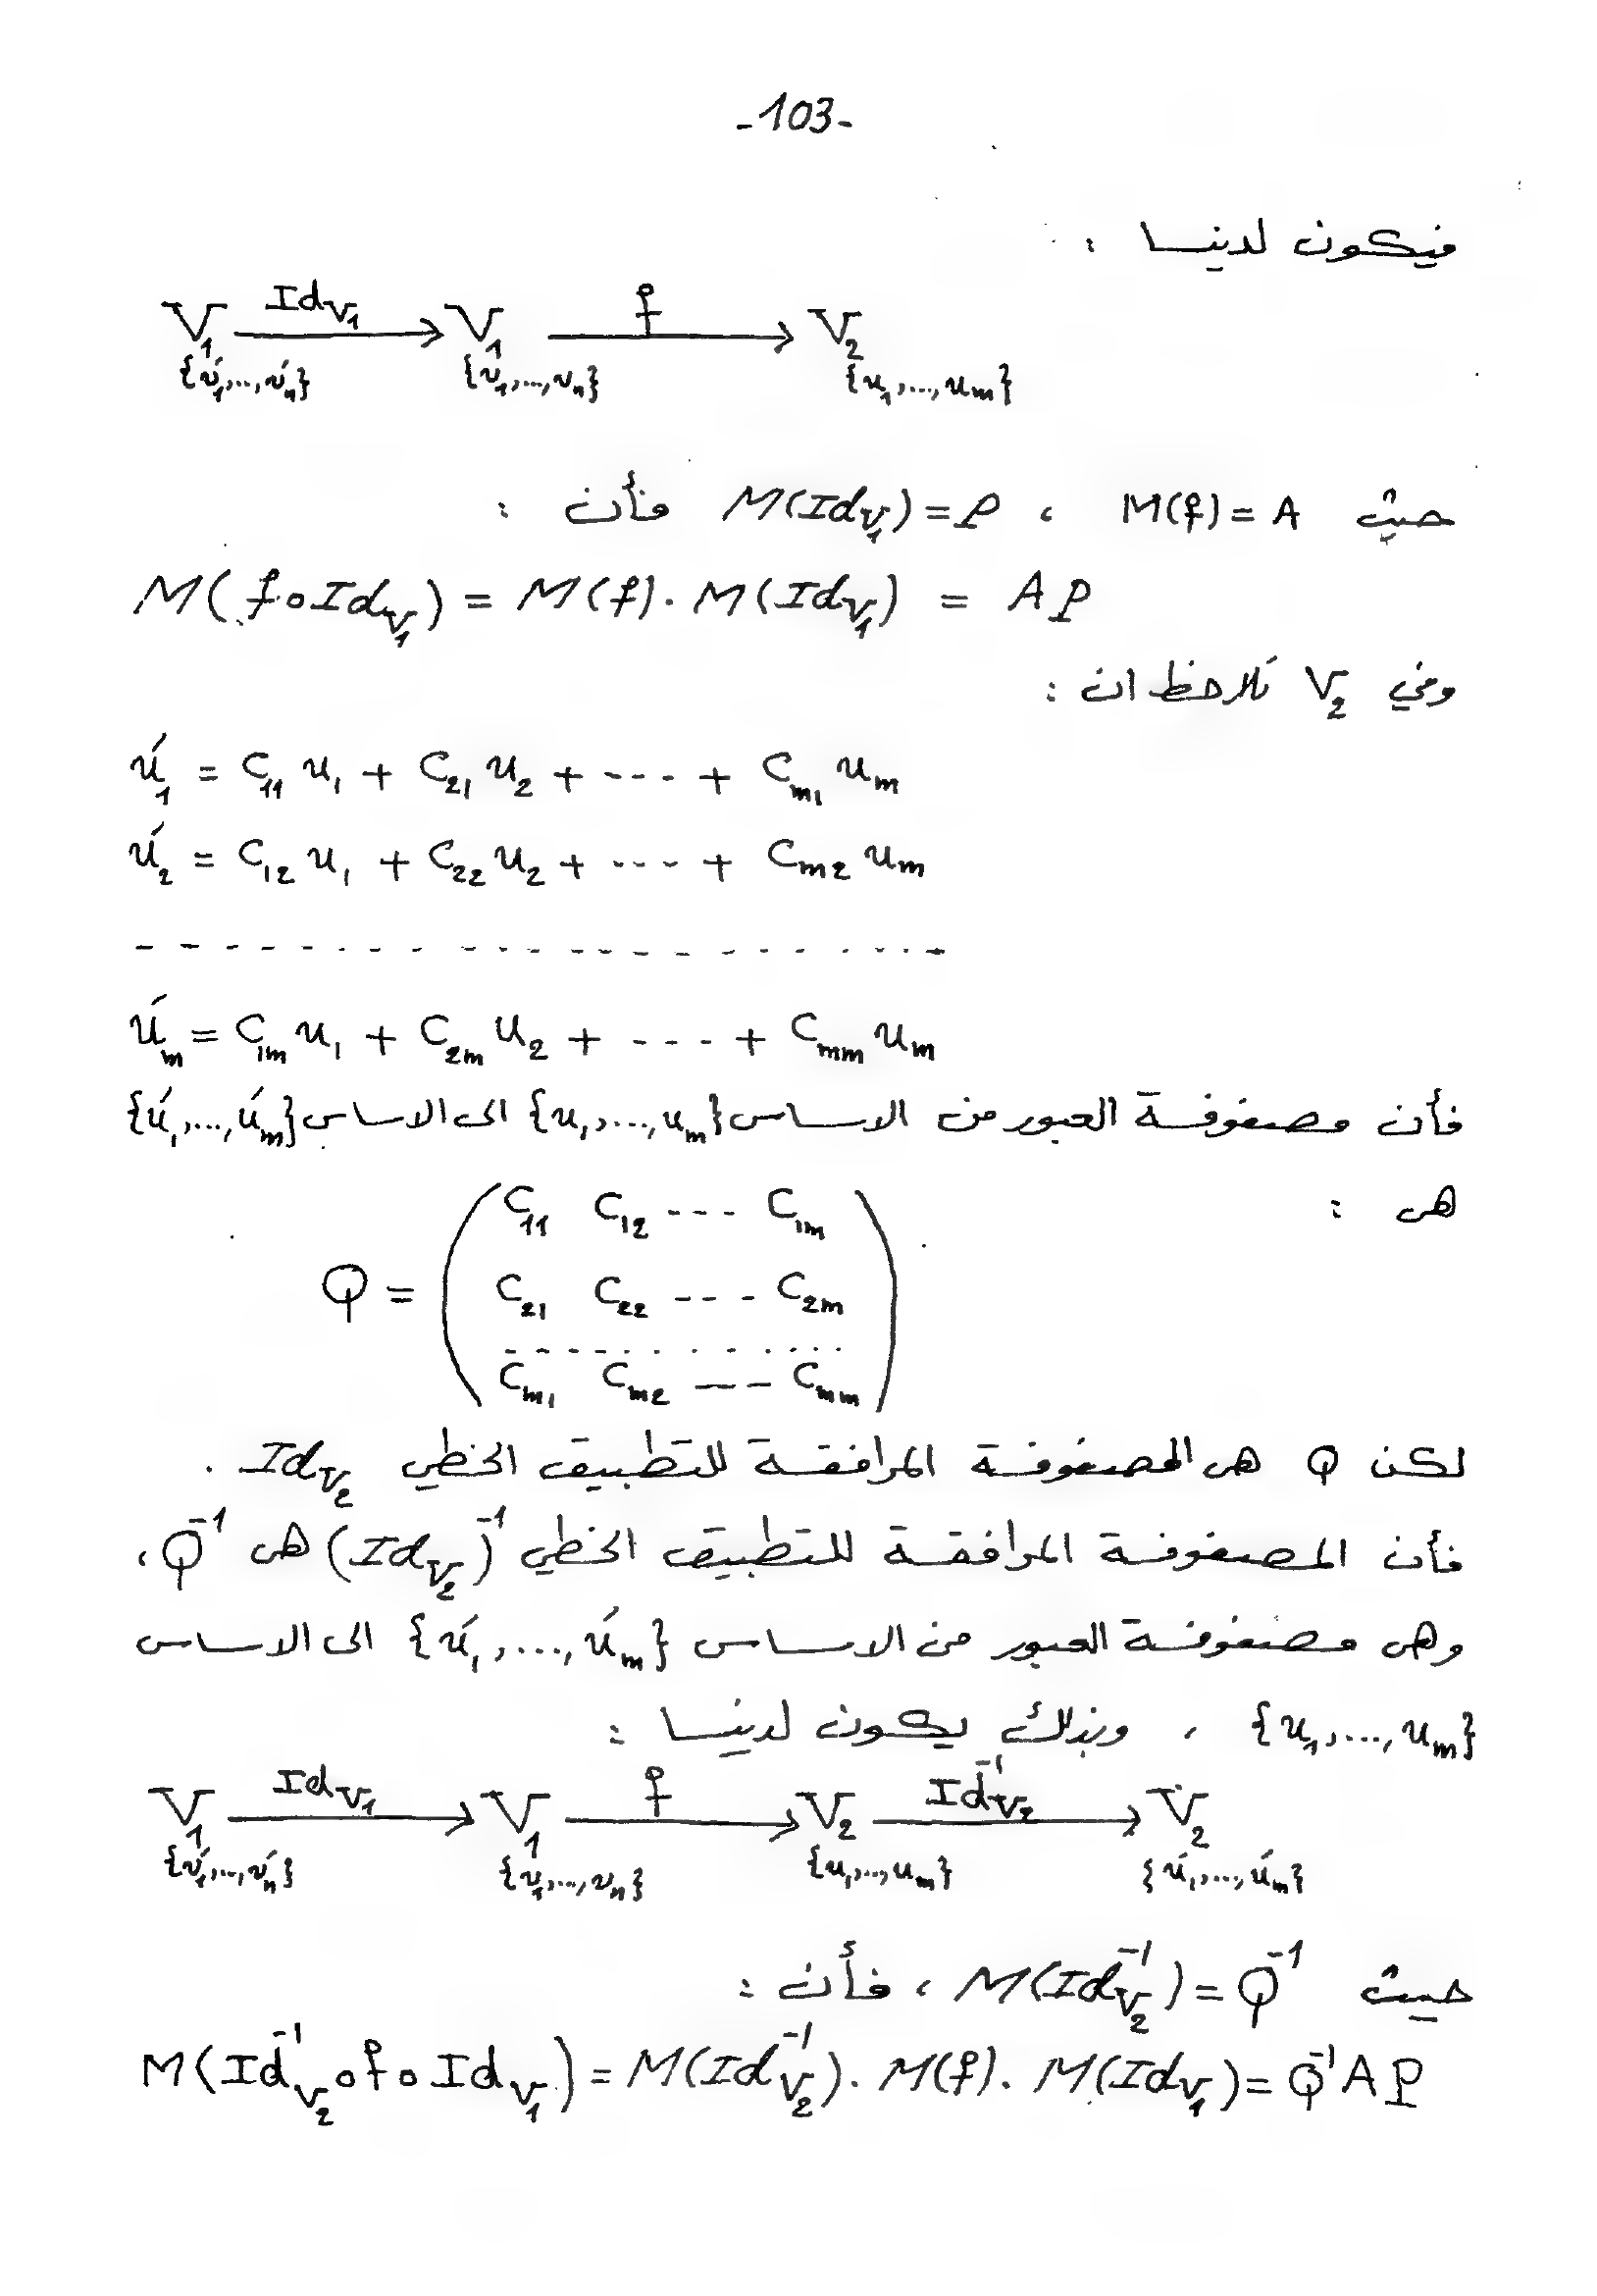 -103-
فيكون لدينا :
V₁ —Id_{V₁}→ V₁ —f→ V₂
{v́₁,..,v́ₙ} {v₁,..,vₙ} {u₁,...,uₘ}
حيث M(f) = A ، M(Id_{V₁}) = P فأن :
M(f∘Id_{V₁}) = M(f). M(Id_{V₁}) = AP
وفي V₂ نلاحظ ان :
ú₁ = C₁₁ u₁ + C₂₁ u₂ + ---- + C_{m1} uₘ
ú₂ = C₁₂ u₁ + C₂₂ u₂ + ---- + C_{m2} uₘ
- - - - - - - - - - - - - - - - - - - -
úₘ = C_{1m} u₁ + C_{2m} u₂ + ---- + C_{mm} uₘ
فأن مصفوفة العبور من الاساس {u₁,...,uₘ} الى الاساس {ú₁,...,úₘ}
هي :
Q = ( C₁₁ C₁₂ --- C_{1m}
C₂₁ C₂₂ --- C_{2m}
- - - - - - - - - - -
C_{m1} C_{m2} --- C_{mm} )
لكن Q هي المصفوفة المرافقة للتطبيق الخطي Id_{V₂} .
فأن المصفوفة المرافقة للتطبيق الخطي (Id_{V₂})⁻¹ هي Q⁻¹ ،
وهي مصفوفة العبور من الاساس {ú₁,...,úₘ} الى الاساس
{u₁,...,uₘ} ، وبذلك يكون لدينا :
V₁ —Id_{V₁}→ V₁ —f→ V₂ —Id⁻¹_{V₂}→ V₂
{v́₁,..,v́ₙ} {v₁,...,vₙ} {u₁,...,uₘ} {ú₁,...,úₘ}
حيث M(Id⁻¹_{V₂}) = Q⁻¹ ، فأن :
M(Id⁻¹_{V₂}∘f∘Id_{V₁}) = M(Id⁻¹_{V₂}). M(f). M(Id_{V₁}) = Q⁻¹AP